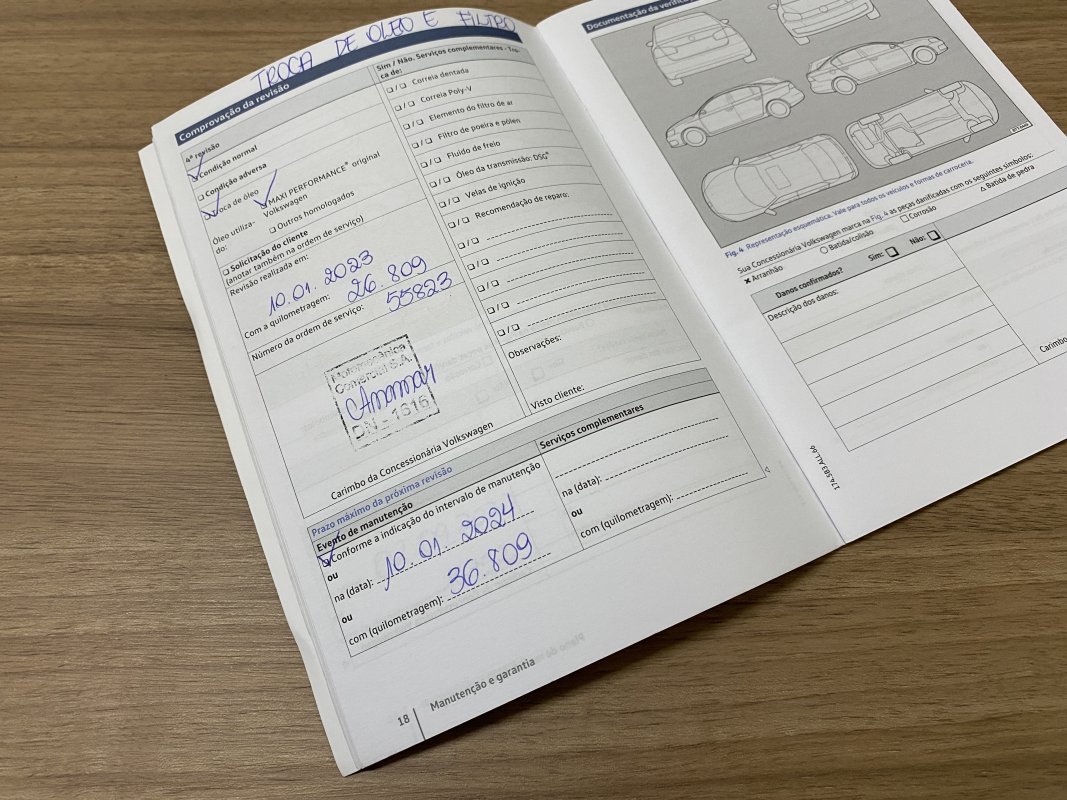 TROCA DE OLEO E FILTRO
Comprovação da revisão
4ª revisão
Condição normal
Condição adversa
Troca de óleo
Óleo utiliza-
do:
MAXI PERFORMANCE® original
Volkswagen
Outros homologados
Solicitação do cliente
(anotar também na ordem de serviço)
Revisão realizada em:
10.01.2023
Com a quilometragem: 26.809
Número da ordem de serviço: 55823
Motomecânica
Comercial S.A.
DN - 1616
Carimbo da Concessionária Volkswagen
Sim / Não. Serviços complementares - Tro-
ca de:
/ Correia dentada
/ Correia Poly-V
/ Elemento do filtro de ar
/ Filtro de poeira e pólen
/ Fluido de freio
/ Óleo da transmissão: DSG®
/ Velas de ignição
/ Recomendação de reparo:
/
/
/
/
/
Observações:
Visto cliente:
Prazo máximo da próxima revisão
Evento de manutenção
Conforme a indicação do intervalo de manutenção
ou
na (data): 10.01.2024
ou
com (quilometragem): 36.809
Serviços complementares
na (data):
ou
com (quilometragem):
18 Manutenção e garantia
Documentação da
Fig. 4 Representação esquemática. Vale para todos os veículos e formas de carroceria.
Sua Concessionária Volkswagen marca na Fig. 4 as peças danificadas com os seguintes símbolos:
Arranhão Batida/colisão Corrosão Batida de pedra
Danos confirmados? Sim: Não:
Descrição dos danos:
174.5B3.ALL.66